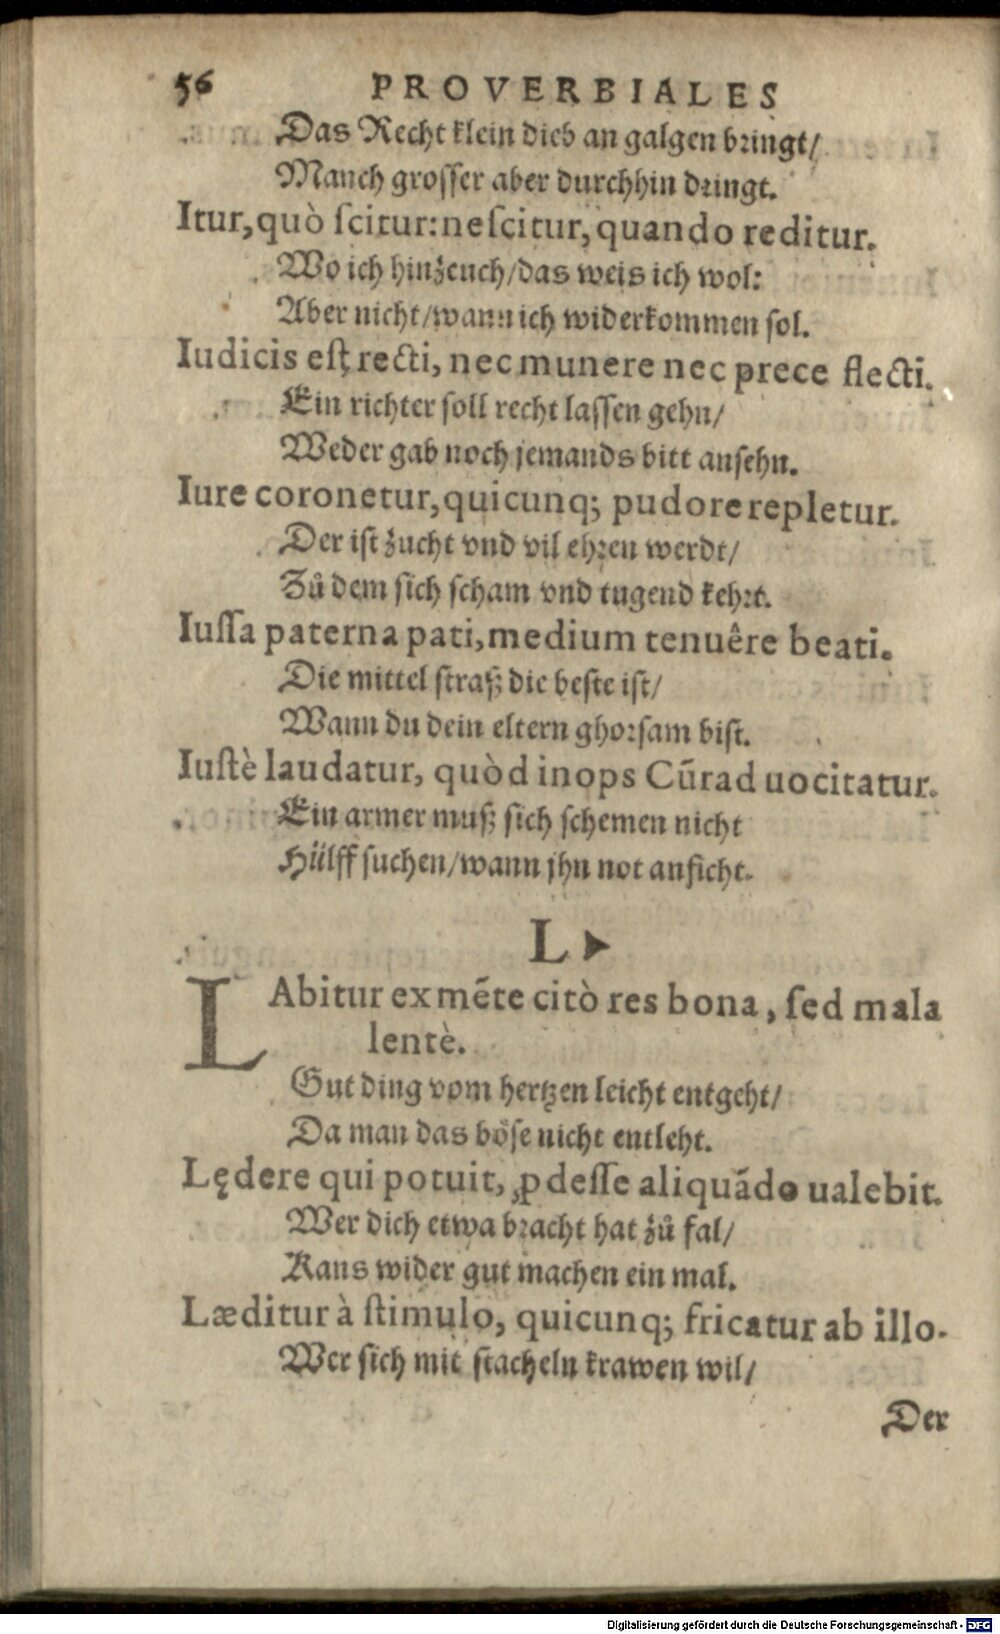 56 PROVERBIALES
Das Recht klein dieb an galgen bringt/
Manch grosser aber durchhin dringt.
Itur, quò ſcitur: neſcitur, quando reditur.
Wo ich hinzeuch/das weis ich wol:
Aber nicht/wann ich widerkommen sol.
Iudicis eſt recti, nec munere nec prece flecti.
Ein richter soll recht lassen gehn/
Weder gab noch jemands bitt ansehn.
Iure coronetur, quicunq; pudore repletur.
Der ist zucht vnd vil ehren werdt/
Zů dem sich scham vnd tugend kehrt.
Iuſſa paterna pati, medium tenuêre beati.
Die mittel straß die beste ist/
Wann du dein eltern ghorsam bist.
Iuſtè laudatur, quòd inops Cũrad uocitatur.
Ein armer muß sich schemen nicht
Hülff suchen/wann jhn not anficht.
L
LAbitur ex mẽte citò res bona, ſed mala
lentè.
Gut ding vom hertzen leicht entgeht/
Da man das böse nicht entleht.
Lędere qui potuit, ꝓdeſſe aliquãdo ualebit.
Wer dich etwa bracht hat zů fal/
Kans wider gut machen ein mal.
Læditur à ſtimulo, quicunq; fricatur ab illo.
Wer sich mit stacheln krawen wil/
Der
Digitalisierung gefördert durch die Deutsche Forschungsgemeinschaft - DFG